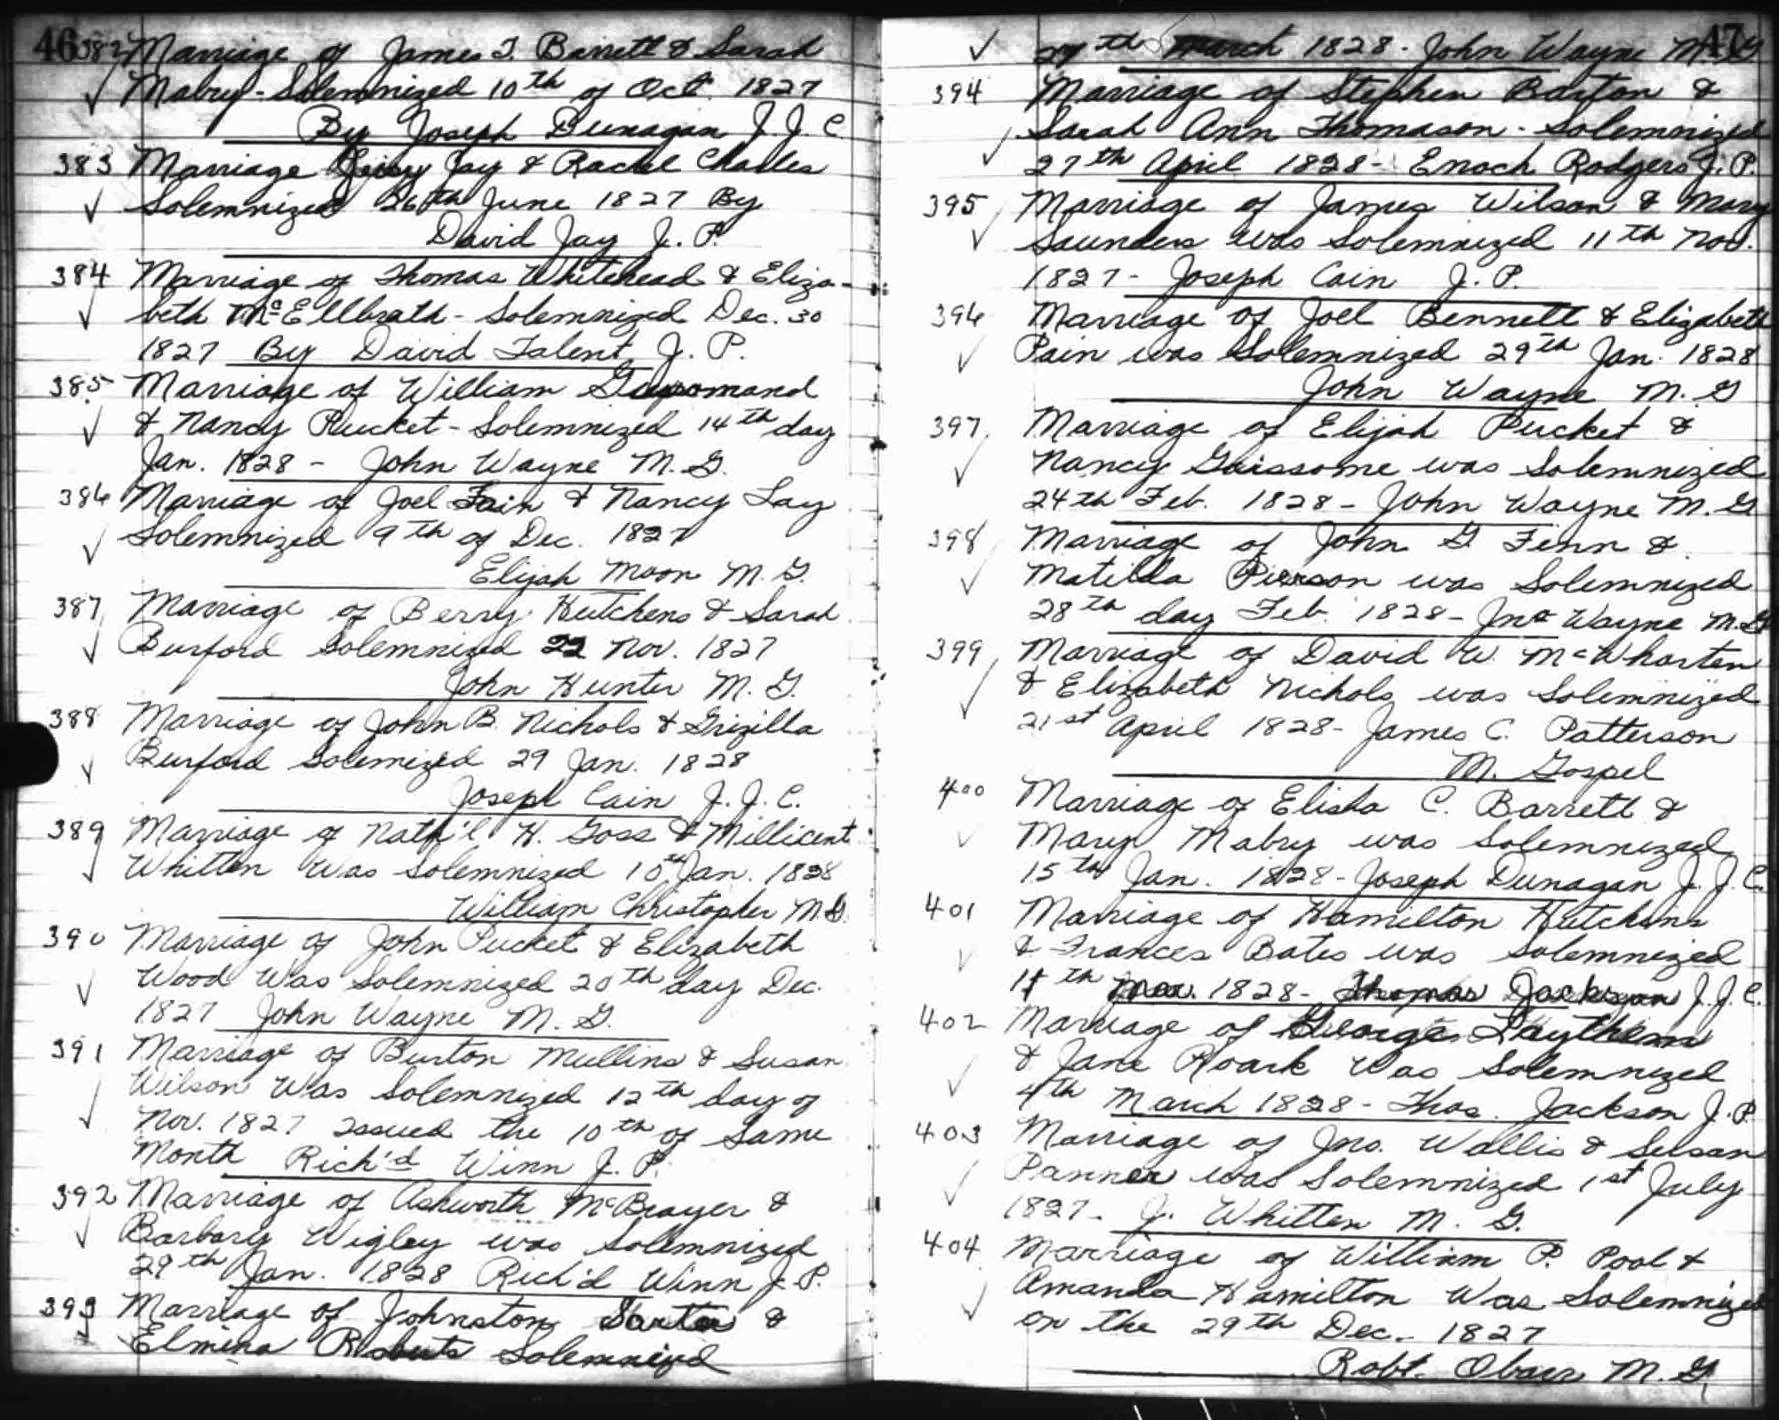 46
382 Marriage of James T. Barrett & Sarah
Mabry - Solemnized 10th of Oct. 1827
By Joseph Dunagan J.J.C
383 Marriage Jay & Rachel Charles
Solemnized 26th June 1827 By
David Jay J.P.
384 Marriage of Thomas Whitehead & Eliza-
beth McEllbrath - Solemnized Dec. 30
1827 By David Talent J.P.
385 Marriage of William
& Nancy Pucket - Solemnized 14th day
Jan. 1828 - John Wayne M.G.
386 Marriage of Joel Fain & Nancy Lay
Solemnized 9th of Dec. 1827
Elijah Moon M.G.
387 Marriage of Berry Hutchens & Sarah
Burford Solemnized 22 Nov. 1827
John Hunter M.G.
388 Marriage of John B. Nichols & Grizilla
Burford Solemized 29 Jan. 1828
Joseph Cain J.J.C.
389 Marriage of Nath'l H. Goss & Millicent
Whitten Was Solemnized 10th Jan. 1828
William Christopher M.G.
390 Marriage of John Pucket & Elizabeth
Wood Was Solemnized 20th day Dec.
1827 John Wayne M.G.
391 Marriage of Burton Mullins & Susan
Wilson Was Solemnized 12th day of
Nov. 1827 Issued the 10th of Same
Month Rich'd Winn J.P.
392 Marriage of Ashworth McBrayer &
Barbary Wigley was Solemnized
29th Jan. 1828 Rich'd Winn J.P.
393 Marriage of Johnston &
Elmina Roberts Solemnized
47
27th March 1828 - John Wayne M.G
394 Marriage of Stephen Barton &
Sarah Ann Thomason - Solemnized
27th April 1828 - Enoch Rodgers J.P.
395 Marriage of James Wilson & Mary
Saunders was Solemnized 11th Nov.
1827 - Joseph Cain J.P.
396 Marriage of Joel Bennett & Elizabeth
Pain was Solemnized 29th Jan. 1828
John Wayne M.G
397 Marriage of Elijah Pucket &
Nancy Guissome was Solemnized
24th Feb. 1828 - John Wayne M.G
398 Marriage of John G Fenn &
Matilda Pierson was Solemnized
28th day Feb. 1828 - Jno Wayne M.G
399 Marriage of David W. McWharten
& Elizabeth Nichols was Solemnized
21st April 1828 - James C. Patterson
M. Gospel
400 Marriage of Elisha C. Barrett &
Mary Mabry was Solemnized
15th Jan. 1828 - Joseph Dunagan J.J.C.
401 Marriage of Hamilton Hutchins
& Frances Bates was Solemnized
1828 - Thomas Jackson J.J.C.
402 Marriage of George Laythem
& Jane Roark Was Solemnized
4th March 1828 - Thos. Jackson J.P.
403 Marriage of Jno. Wallis & Susan
Panner was Solemnized 1st July
1827 - J. Whitten M.G.
404 Marriage of William P. Pool &
Amanda Hamilton Was Solemnized
on the 29th Dec. 1827
Robt. Obarr M.G.